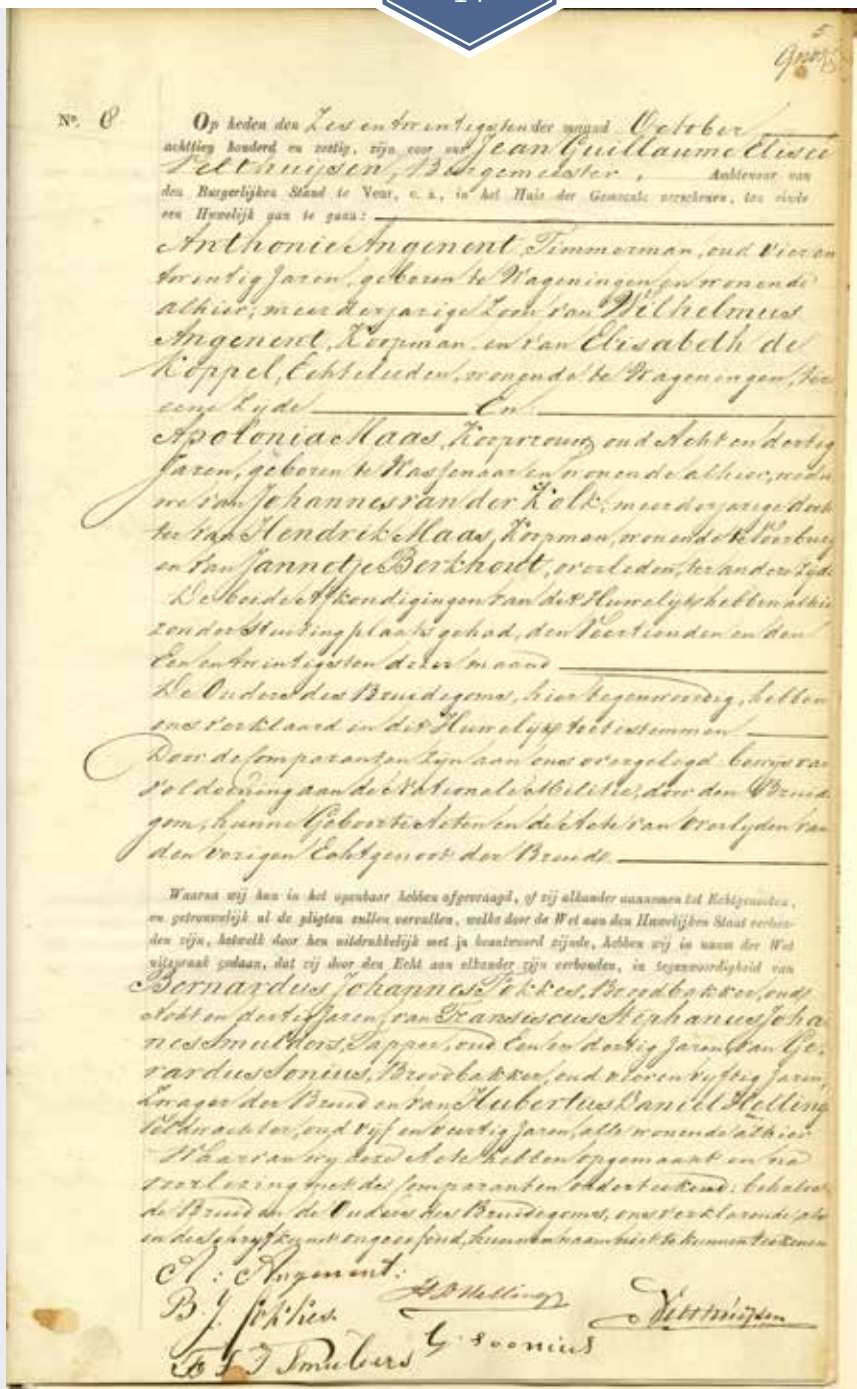 5
N°. 8
Op heden den Zes en twintigsten der maand October
achttien honderd en zestig, zijn voor ons Jean Guillaume Elisée
Velthuijsen, Burgemeester, Ambtenaar van
den Burgerlijken Stand te Veur, c. a., in het Huis der Gemeente verschenen, ten einde
een Huwelijk aan te gaan:
Anthonie Angenent, Timmerman, oud vier en
twintig Jaren, geboren te Wageningen en wonende
alhier, meerderjarige Zoon van Wilhelmus
Angenent, Koopman en van Elisabeth de
Koppel, Echtelieden, wonende te Wageningen, ter
eene zyde En
Apolonia Maas, Koopvrouw, oud Acht en dertig
Jaren, geboren te Wassenaar en wonende alhier, wedu
we van Johannes van der Kolk, meerderjarige doch
ter van Hendrik Maas, Koopman, wonende te Voorburg
en van Jannetje Berkhout, overleden, ter andere zyde
De beide Afkondigingen van dit Huwelyk hebben alhier
zonder stuiting plaats gehad, den Veertienden en den
Een en twintigsten dezer maand
De Ouders des Bruidegoms, hier tegenwoordig, hebben
ons verklaard in dit Huwelyk toetestemmen
Door de Comparanten zyn aan ons overgelegd: bewys van
voldoening aan de Nationale Militie, door den Bruide
gom, hunne Geboorte Acten en de Acte van Overlyden van
den vorigen Echtgenoot der Bruid
Waarna wij hun in het openbaar hebben afgevraagd, of zij elkander aannemen tot Echtgenooten,
en getrouwelijk al de pligten zullen vervullen, welke door de Wet aan den Huwelijken Staat verbon-
den zijn, hetwelk door hen uitdrukkelijk met ja beantwoord zijnde, hebben wij in naam der Wet
uitspraak gedaan, dat zij door den Echt aan elkander zijn verbonden, in tegenwoordigheid van
Bernardus Johannes Fokkes, Broodbakker, oud
Acht en dertig Jaren, van Fransiscus Stephanus Joha
nes Smulders, Tapper, oud Een en dertig Jaren, van Ge-
rardus Sonius, Broodbakker, oud vier en vyftig Jaren,
Zwager der Bruid en van Hubertus Daniel Helling
Veldwachter, oud vyf en veertig Jaren, alle wonende alhier
Waarvan wy deze Acte hebben opgemaakt en na
voorlezing met de Comparanten onderteekend: behalve
de Bruid en de Ouders des Bruidegoms, ons verklarende, als
in de schryfkunst ongeoefend, hunnen naam niet te kunnen teekenen
A: Angenent:
B. J. Fokkes H D Helling Velthuijsen
G. Soonius
F S J Smulders